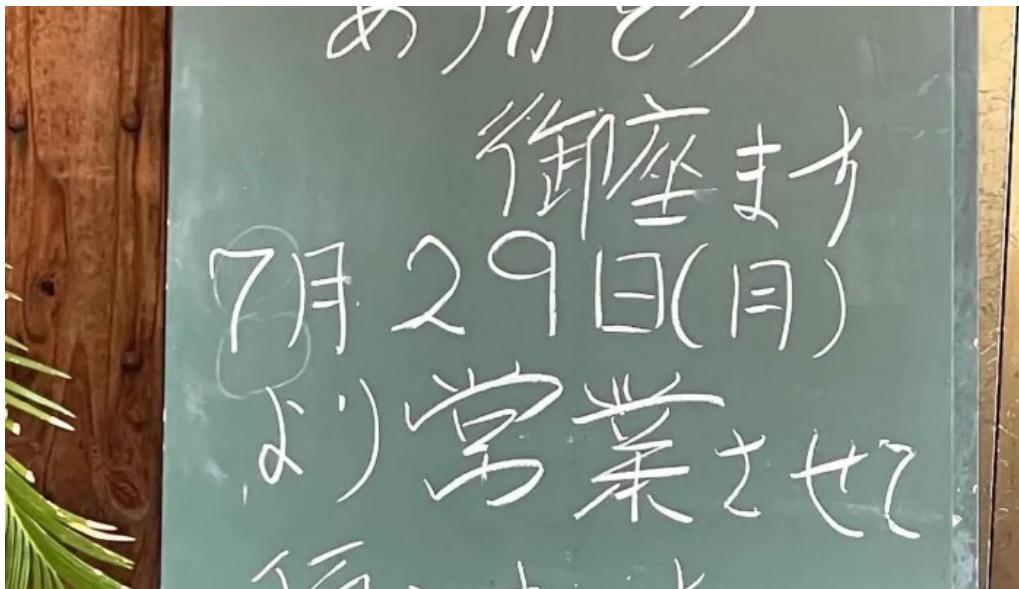 ありがとう
御座ます
7月29日(月)
より営業させて